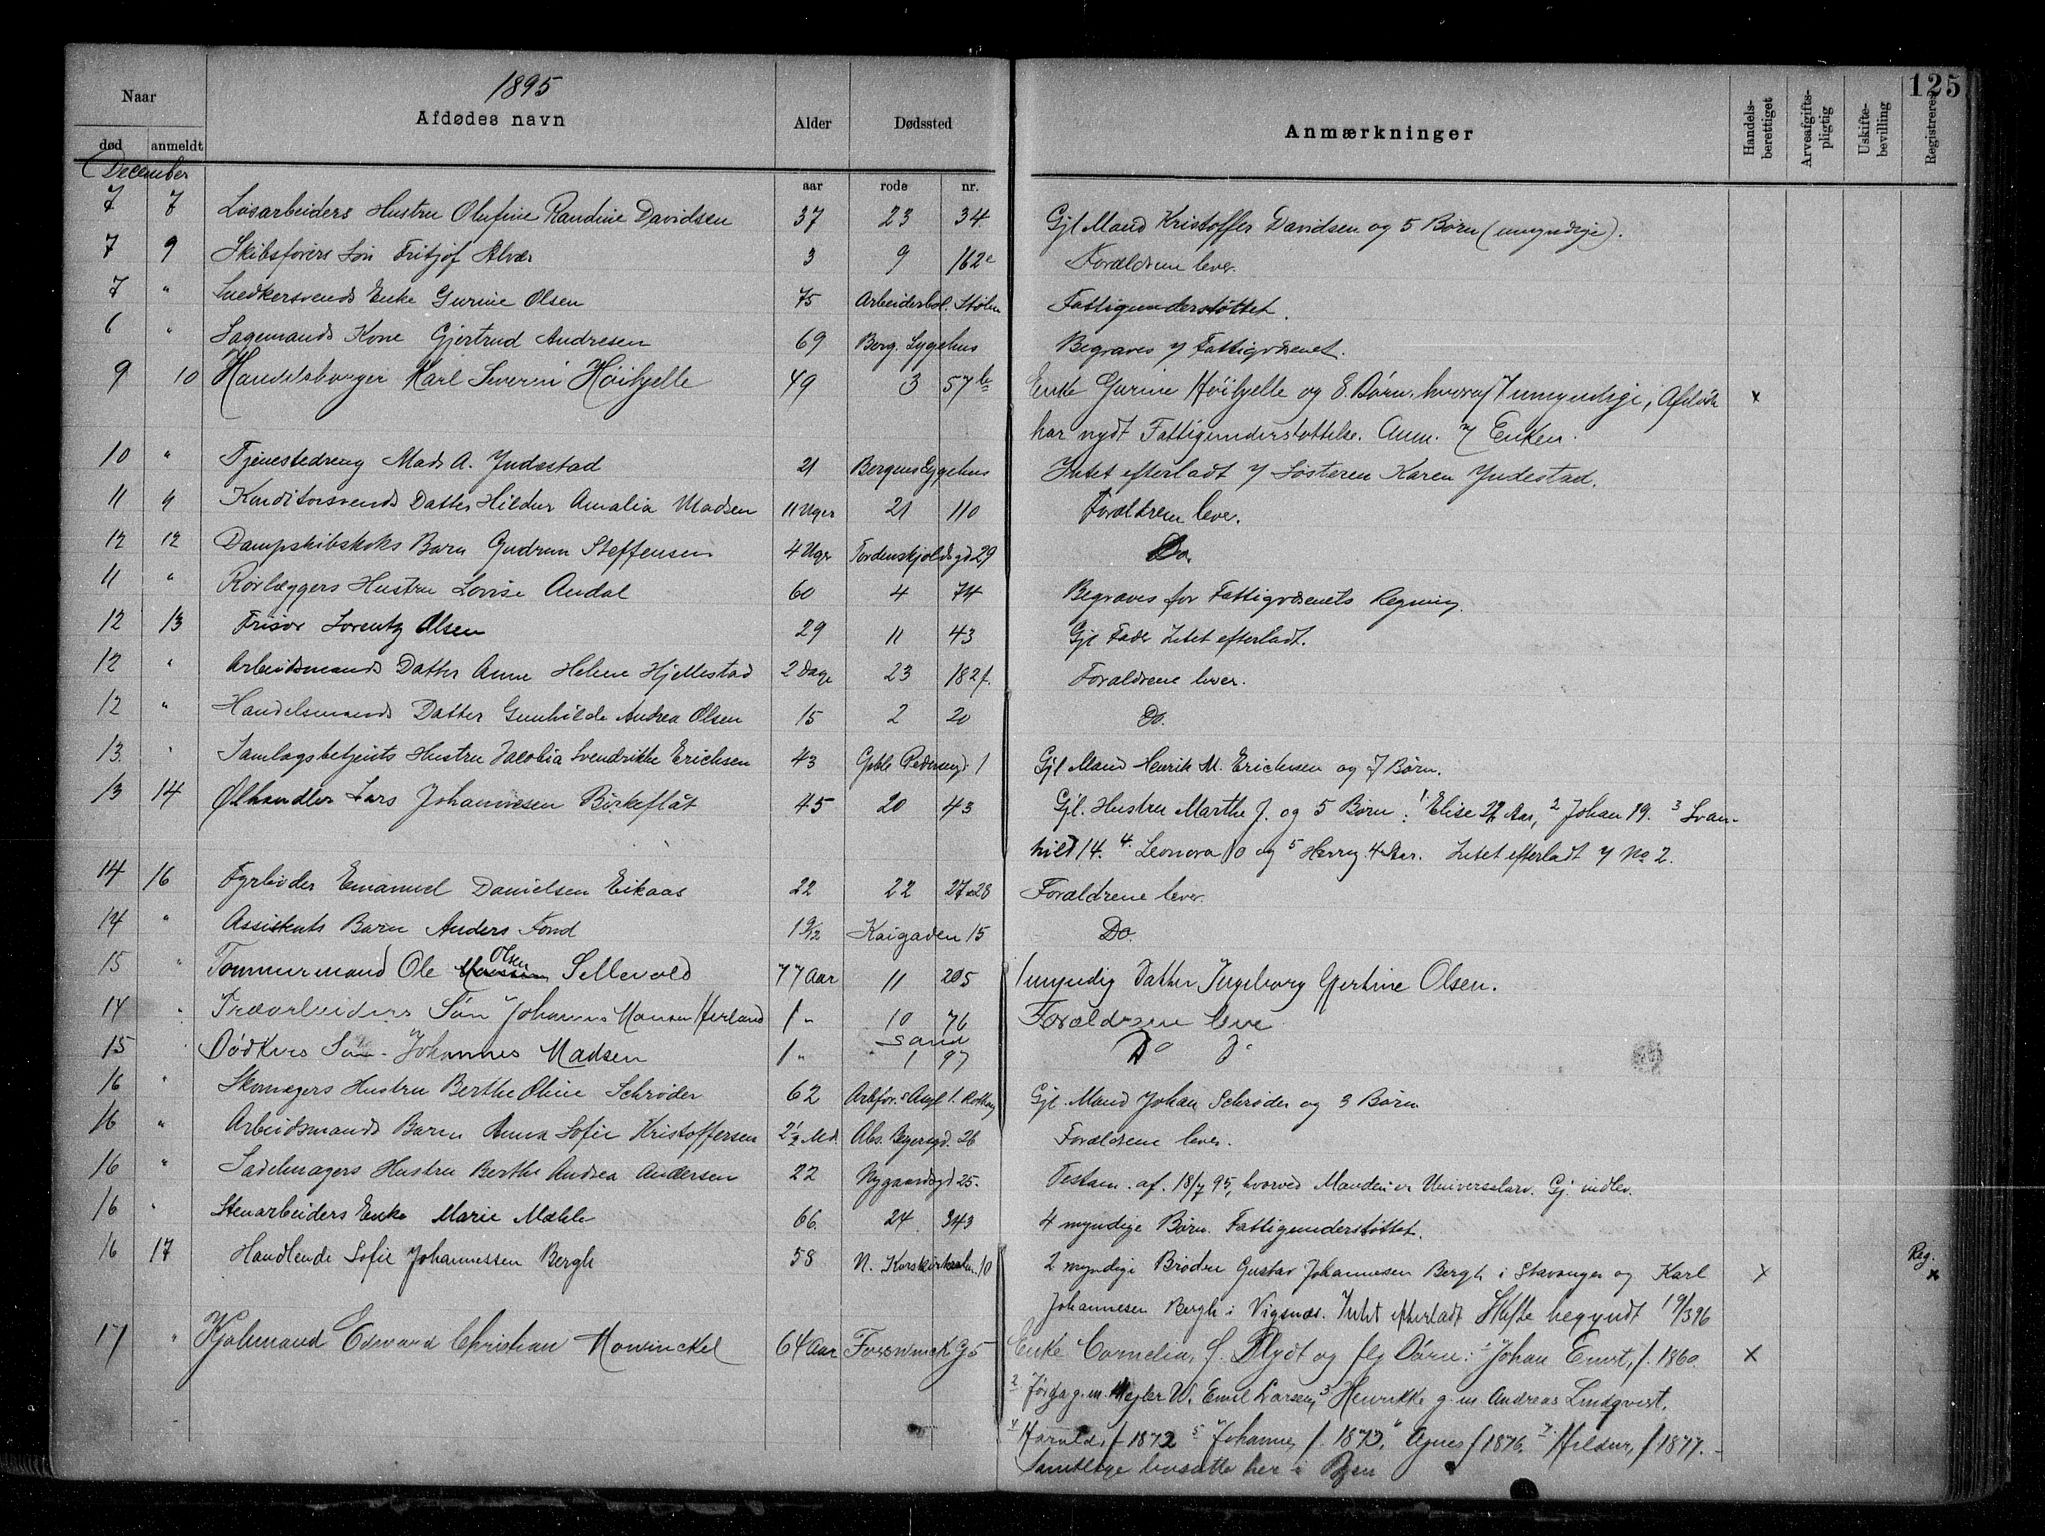 125
1895
Naar
Afdødes navn
Alder
Dødssted
Anmærkninger
Handels-berettiget
Arveafgifts-pligtig
Uskifte-bevilling
Registreres
død anmeldt
December
aar rode nr.
7 7 Løsarbeiders Hustru Olufine Randine Davidsen 37 23 34. Gjl Mand Kristoffer Davidsen og 5 Børn (umyndige).
7 9 Skibsførers Søn Fritjof Alvær 3 9 162c Forældrene lever.
7 " Snedkersvends Enke Gurine Olsen 75 Arbeiderbol. Stølen Fattigunderstøttet.
6 " Sagemands Kone Gjertrud Andresen 69 Berg. Sygehus Begraves af Fattigvæsenet.
9 10 Handelsborger Karl Severin Höibjelle 49 3 57b Enke Gurine Höibjelle og 8 Børn, hvoraf 7 umyndige, Afdøde x
har nydt Fattigunderstøttelse. Anm. af Enken.
10 " Tjenestedreng Mads A. Yndestad 21 Bergens Sygehus Intet efterladt af Søsteren Karen Yndestad.
11 " Konditorsvends Datter Hildur Amalia Madsen 11 Uger 21 110 Forældrene lever.
12 12 Dampskibskoks Barn Gudrun Steffensen 4 Uger Tordenskjoldsgd 29 Do.
11 " Rørlæggers Hustru Lovise Andal 60 4 74 Begraves for Fattigvæsenets Regning.
12 13 Frisør Lorentz Olsen 29 11 43 Gjl Fader Intet efterladt.
12 " Arbeidsmands Datter Anne Helene Hjellestad 2 Dage 23 182f. Forældrene lever.
12 " Handelsmands Datter Gunhilde Andrea Olsen 15 2 20 Do.
13. " Samlagsbetjents Hustru Jacobia Svendrikke Erichsen 43 Gøble Pedersengd. 1 Gjl Mand Henrik M. Erichsen og 7 Børn.
13 14 Ølhandler Lars Johannesen Börkeflåt 45 20 43 Gjl. Hustru Marthe J. og 5 Børn: 1. Elise 22 Aar, 2 Johan 19. 3 Svan-
hild 14. 4. Leonora 10 og 5 Herry 4 Aar. Intet efterladt af No 2.
14 16 Fyrbøder Emanuel Danielsen Eikaas 22 22 27a28 Forældrene lever.
14 " Assistents Barn Anders Fond 1 9/12 Kaigaden 15 Do.
15 " Tømmermand Ole Olsen Sellevold 77 Aar 11 205 1 myndig Datter Ingeborg Gjertine Olsen.
14 " Træarbeiders Søn Johannes Monsen Herland 1 " 10 76 Forældrene leve
15 " Bödkers Søn Johannes Madsen 1 " Sand 1 97 Do Do
16 " Skomagers Hustru Berthe Oline Schrøder 62 Arbfor.s Anst 1. Rothaug Gjl. Mand Johan Schrøder og 3 Børn
16 " Arbeidsmands Barn Anna Sofie Kristoffersen 2 1/2 Md. Abs. Beyersgd. 26 Forældrene lever.
16 " Sadelmagers Hustru Berthe Andrea Andersen 22 Nygaardsgd 25. Testam. af. 18/7 95, hvorved Manden er Universalarv. Gj. indlev.
16 " Stenarbeiders Enke Marie Mæhle 66. 24. 343 4 myndige Børn. Fattigunderstøttet.
16 17 Handlende Sofie Johannessen Bergh 58 N. Korskirkealm. 10 2 myndige Brødre Gustav Johannesen Bergh i Stavanger og Karl x Reg. x
Johannesen Bergh i Vigsnæs. Intet efterladt Skifte begyndt 19/3 96
17 " Kjøbmand Edward Christian Mowinckel 64 Aar Forswinck G 5 Enke Cornelia, f. Blydt og flg Børn: 1 Johan Ernst, f. 1860. x
2 g. m. W. Emil Larsen, 3 Henrikke g. m Andreas Lindqvist,
4 Harald, f 1872 5 Johanne, f. 1873, 6 Agnes f 1876. 7. Hildur, f 1877.-
Samtlige bosatte her i Byen